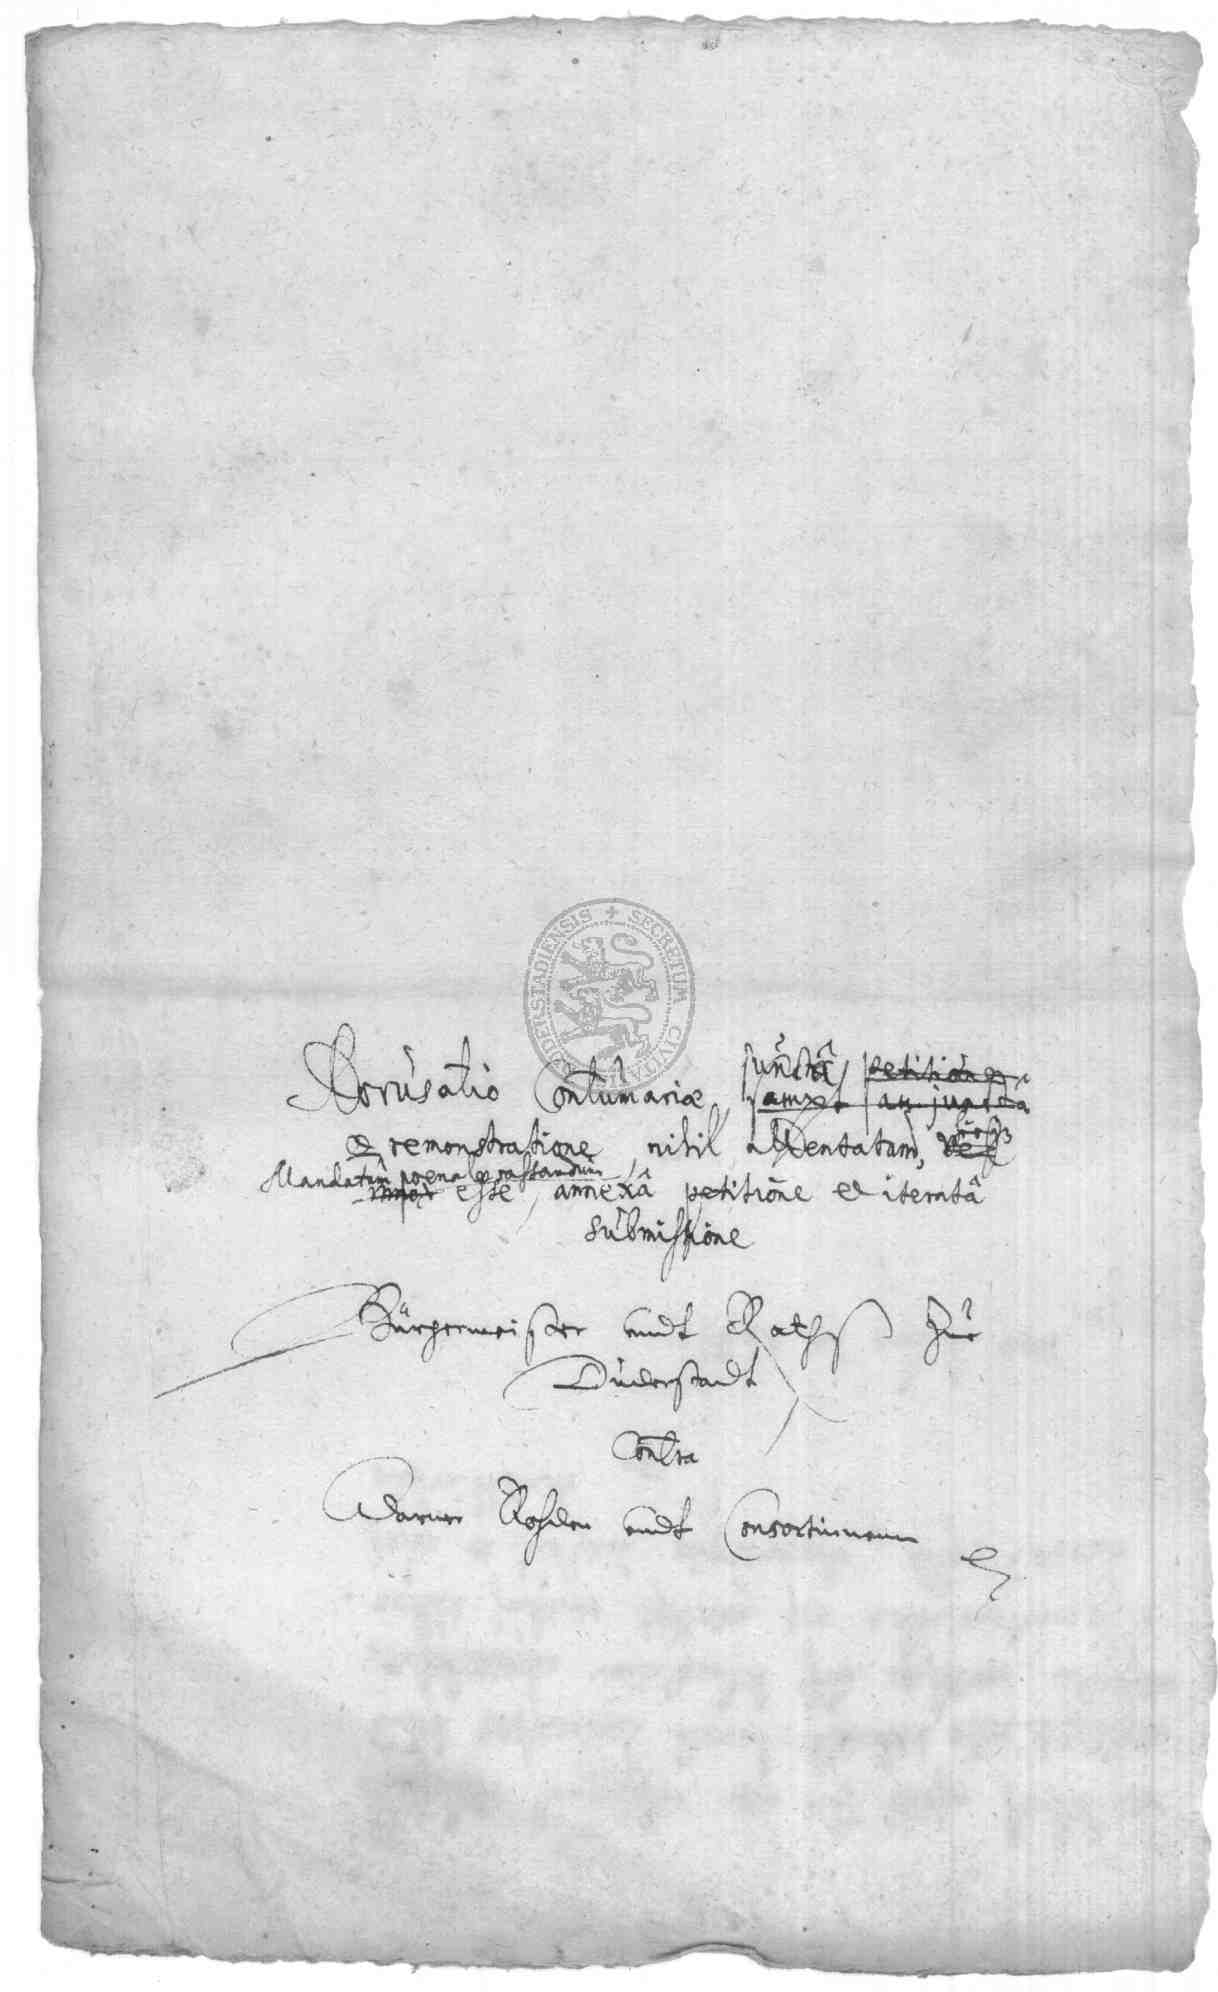 SECRETUM CIVITATIS DUDERSTADIENSIS
Accusatio Contumaciæ, junctâ petitione
sampt an juncta
et remonstratione, nihil attentatum,
Mandatum poenale cassandum
esse, annexâ petitione et iteratâ
submissione
Bürgermeister undt Raths zue
Duderstadt
Contra
Warner Rohden undt Consorten